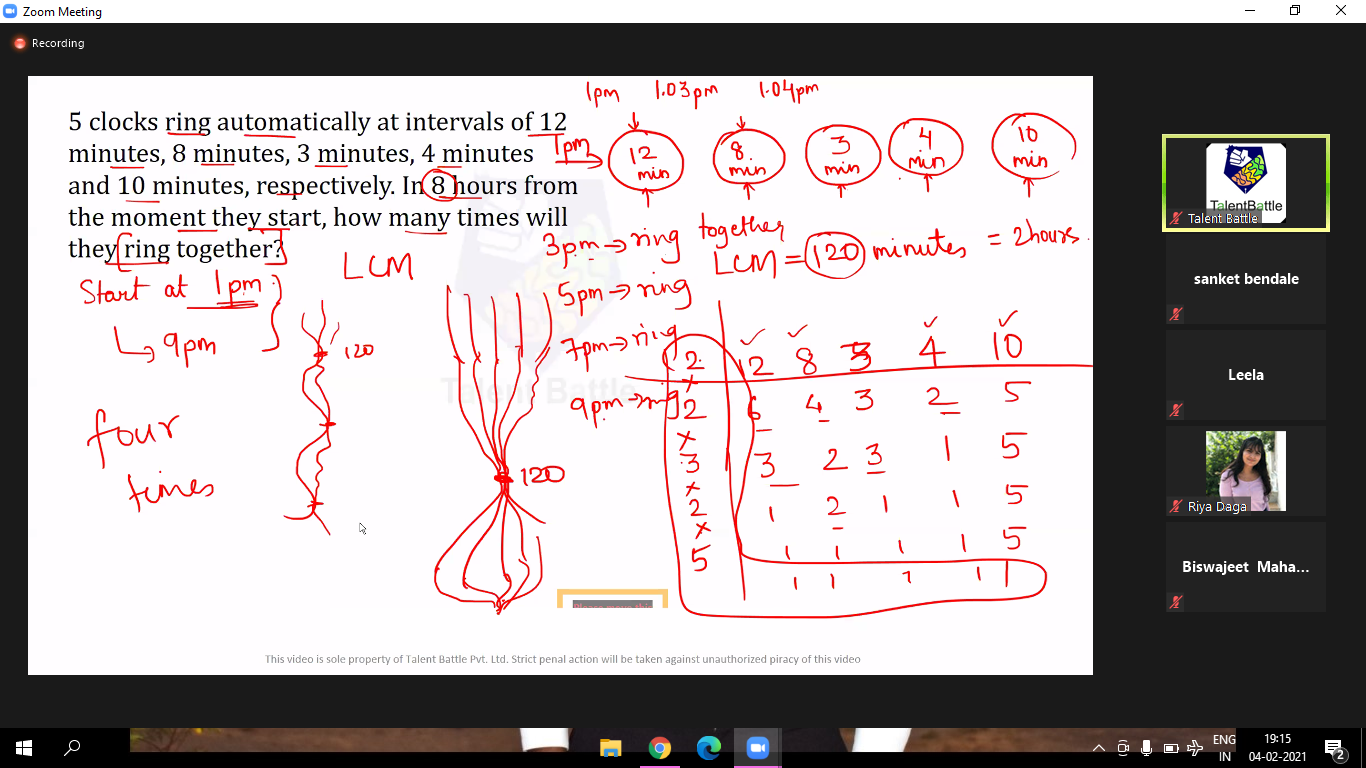 Zoom Meeting
Recording
5 clocks ring automatically at intervals of 12
minutes, 8 minutes, 3 minutes, 4 minutes
and 10 minutes, respectively. In 8 hours from
the moment they start, how many times will
they ring together?
1pm 1.03pm 1.04pm
1pm
12 min
8 min
3 min
4 min
10 min
3pm → ring together
LCM = 120 minutes = 2hours.
5pm → ring
7pm → ring
9pm → ring
LCM
Start at 1pm
9pm
120
four
times
120
2 12 8 3 4 10
2 6 4 3 2 5
3 3 2 3 1 5
2 1 2 1 1 5
5 1 1 1 1 5
1 1 1 1 1
Talent Battle
This video is sole property of Talent Battle Pvt. Ltd. Strict penal action will be taken against unauthorized piracy of this video
TalentBattle
Talent Battle
sanket bendale
Leela
Riya Daga
Biswajeet Maha...
ENG
IN
19:15
04-02-2021
2